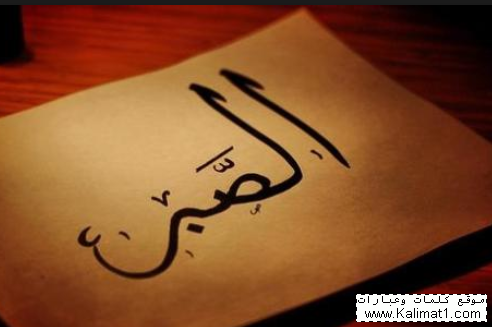 الصَّبر
موقع كلمات وعبارات
www.Kalimat1.com